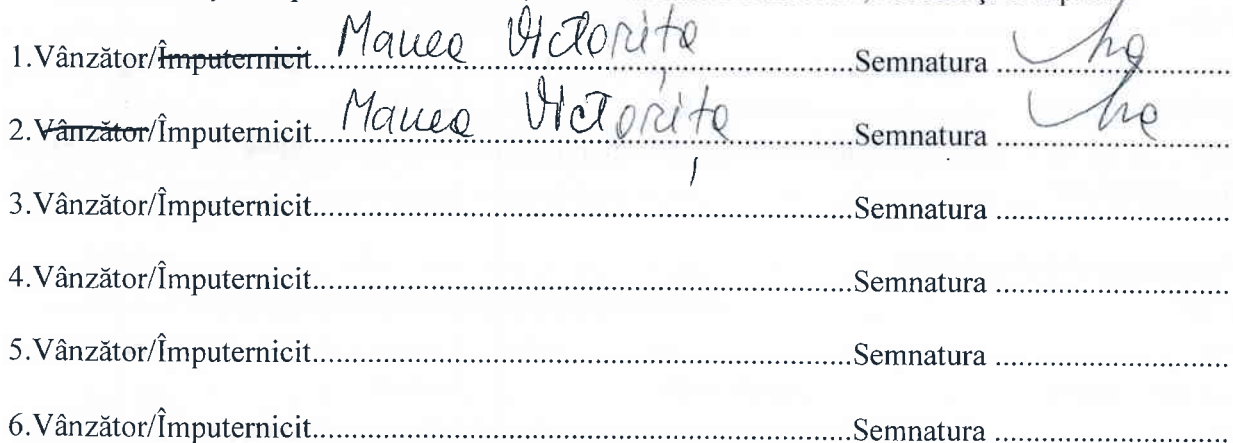 1.Vânzător/Împuternicit Manea Victorița Semnatura
2.Vânzător/Împuternicit Manea Victorița Semnatura
3.Vânzător/Împuternicit Semnatura
4.Vânzător/Împuternicit Semnatura
5.Vânzător/Împuternicit Semnatura
6.Vânzător/Împuternicit Semnatura